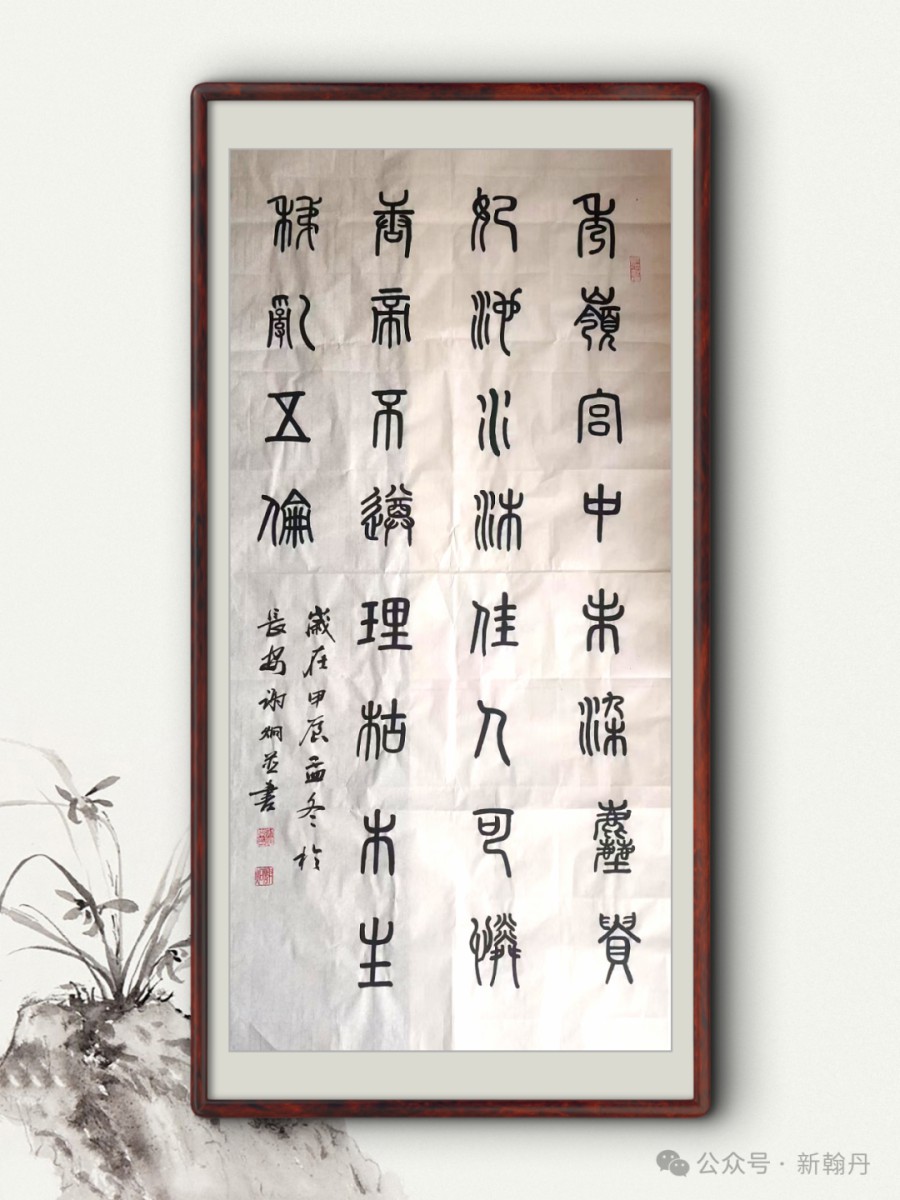 秀嶺宮中未染塵貴
妃池水沐佳人可憐
唐帝不遵理枯木生
稊亂五倫
歲在甲辰孟冬於
長安謝炯並書
公众号 · 新翰丹